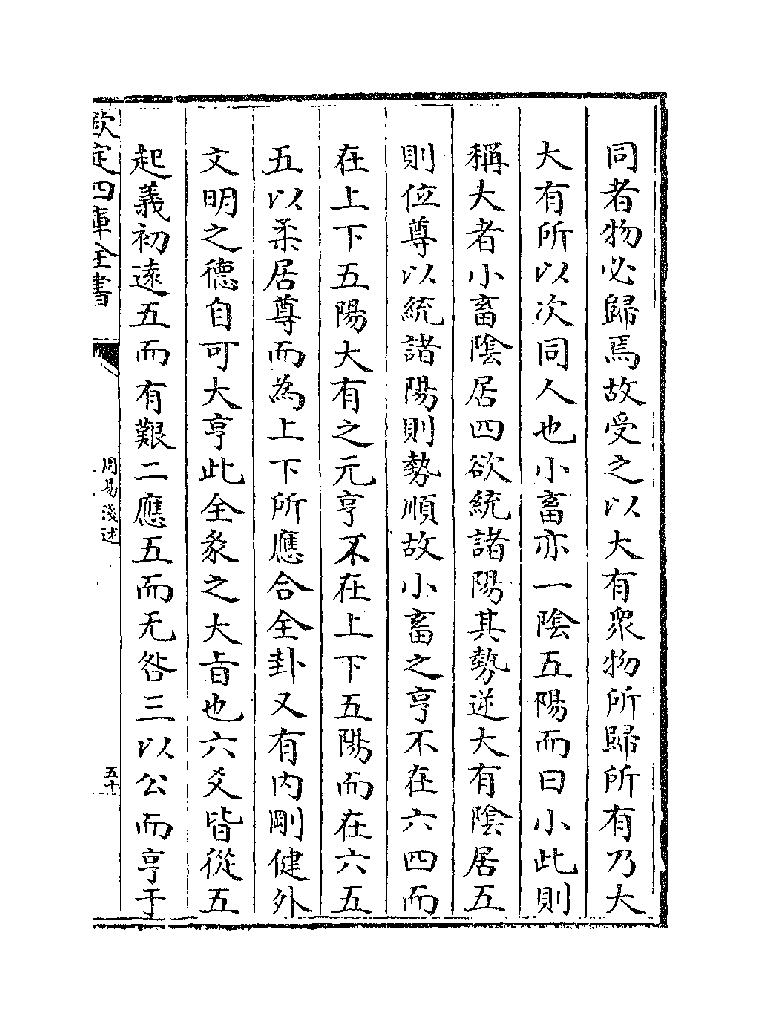 同者物必歸焉故受之以大有衆物所歸所有乃大
大有所以次同人也小畜亦一陰五陽而曰小此則
稱大者小畜陰居四欲統諸陽其勢逆大有陰居五
則位尊以統諸陽則勢順故小畜之亨不在六四而
在上下五陽大有之元亨不在上下五陽而在六五
五以柔居尊而為上下所應合全卦又有内剛健外
文明之德自可大亨此全彖之大㫖也六爻皆從五
起義初遠五而有艱二應五而无咎三以公而亨于
欽定四庫全書
周易淺述
五十